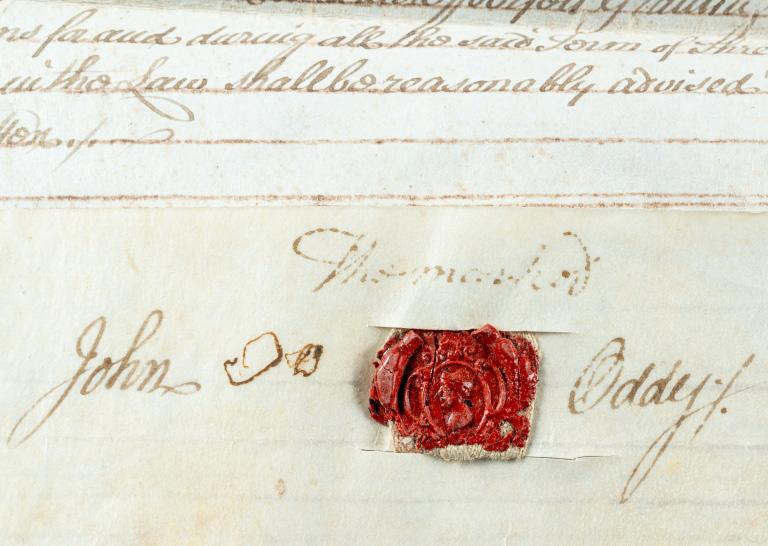 ns for and during all the said Term of Thre
in the Law shall be reasonably advised
The mark of
John Oddy